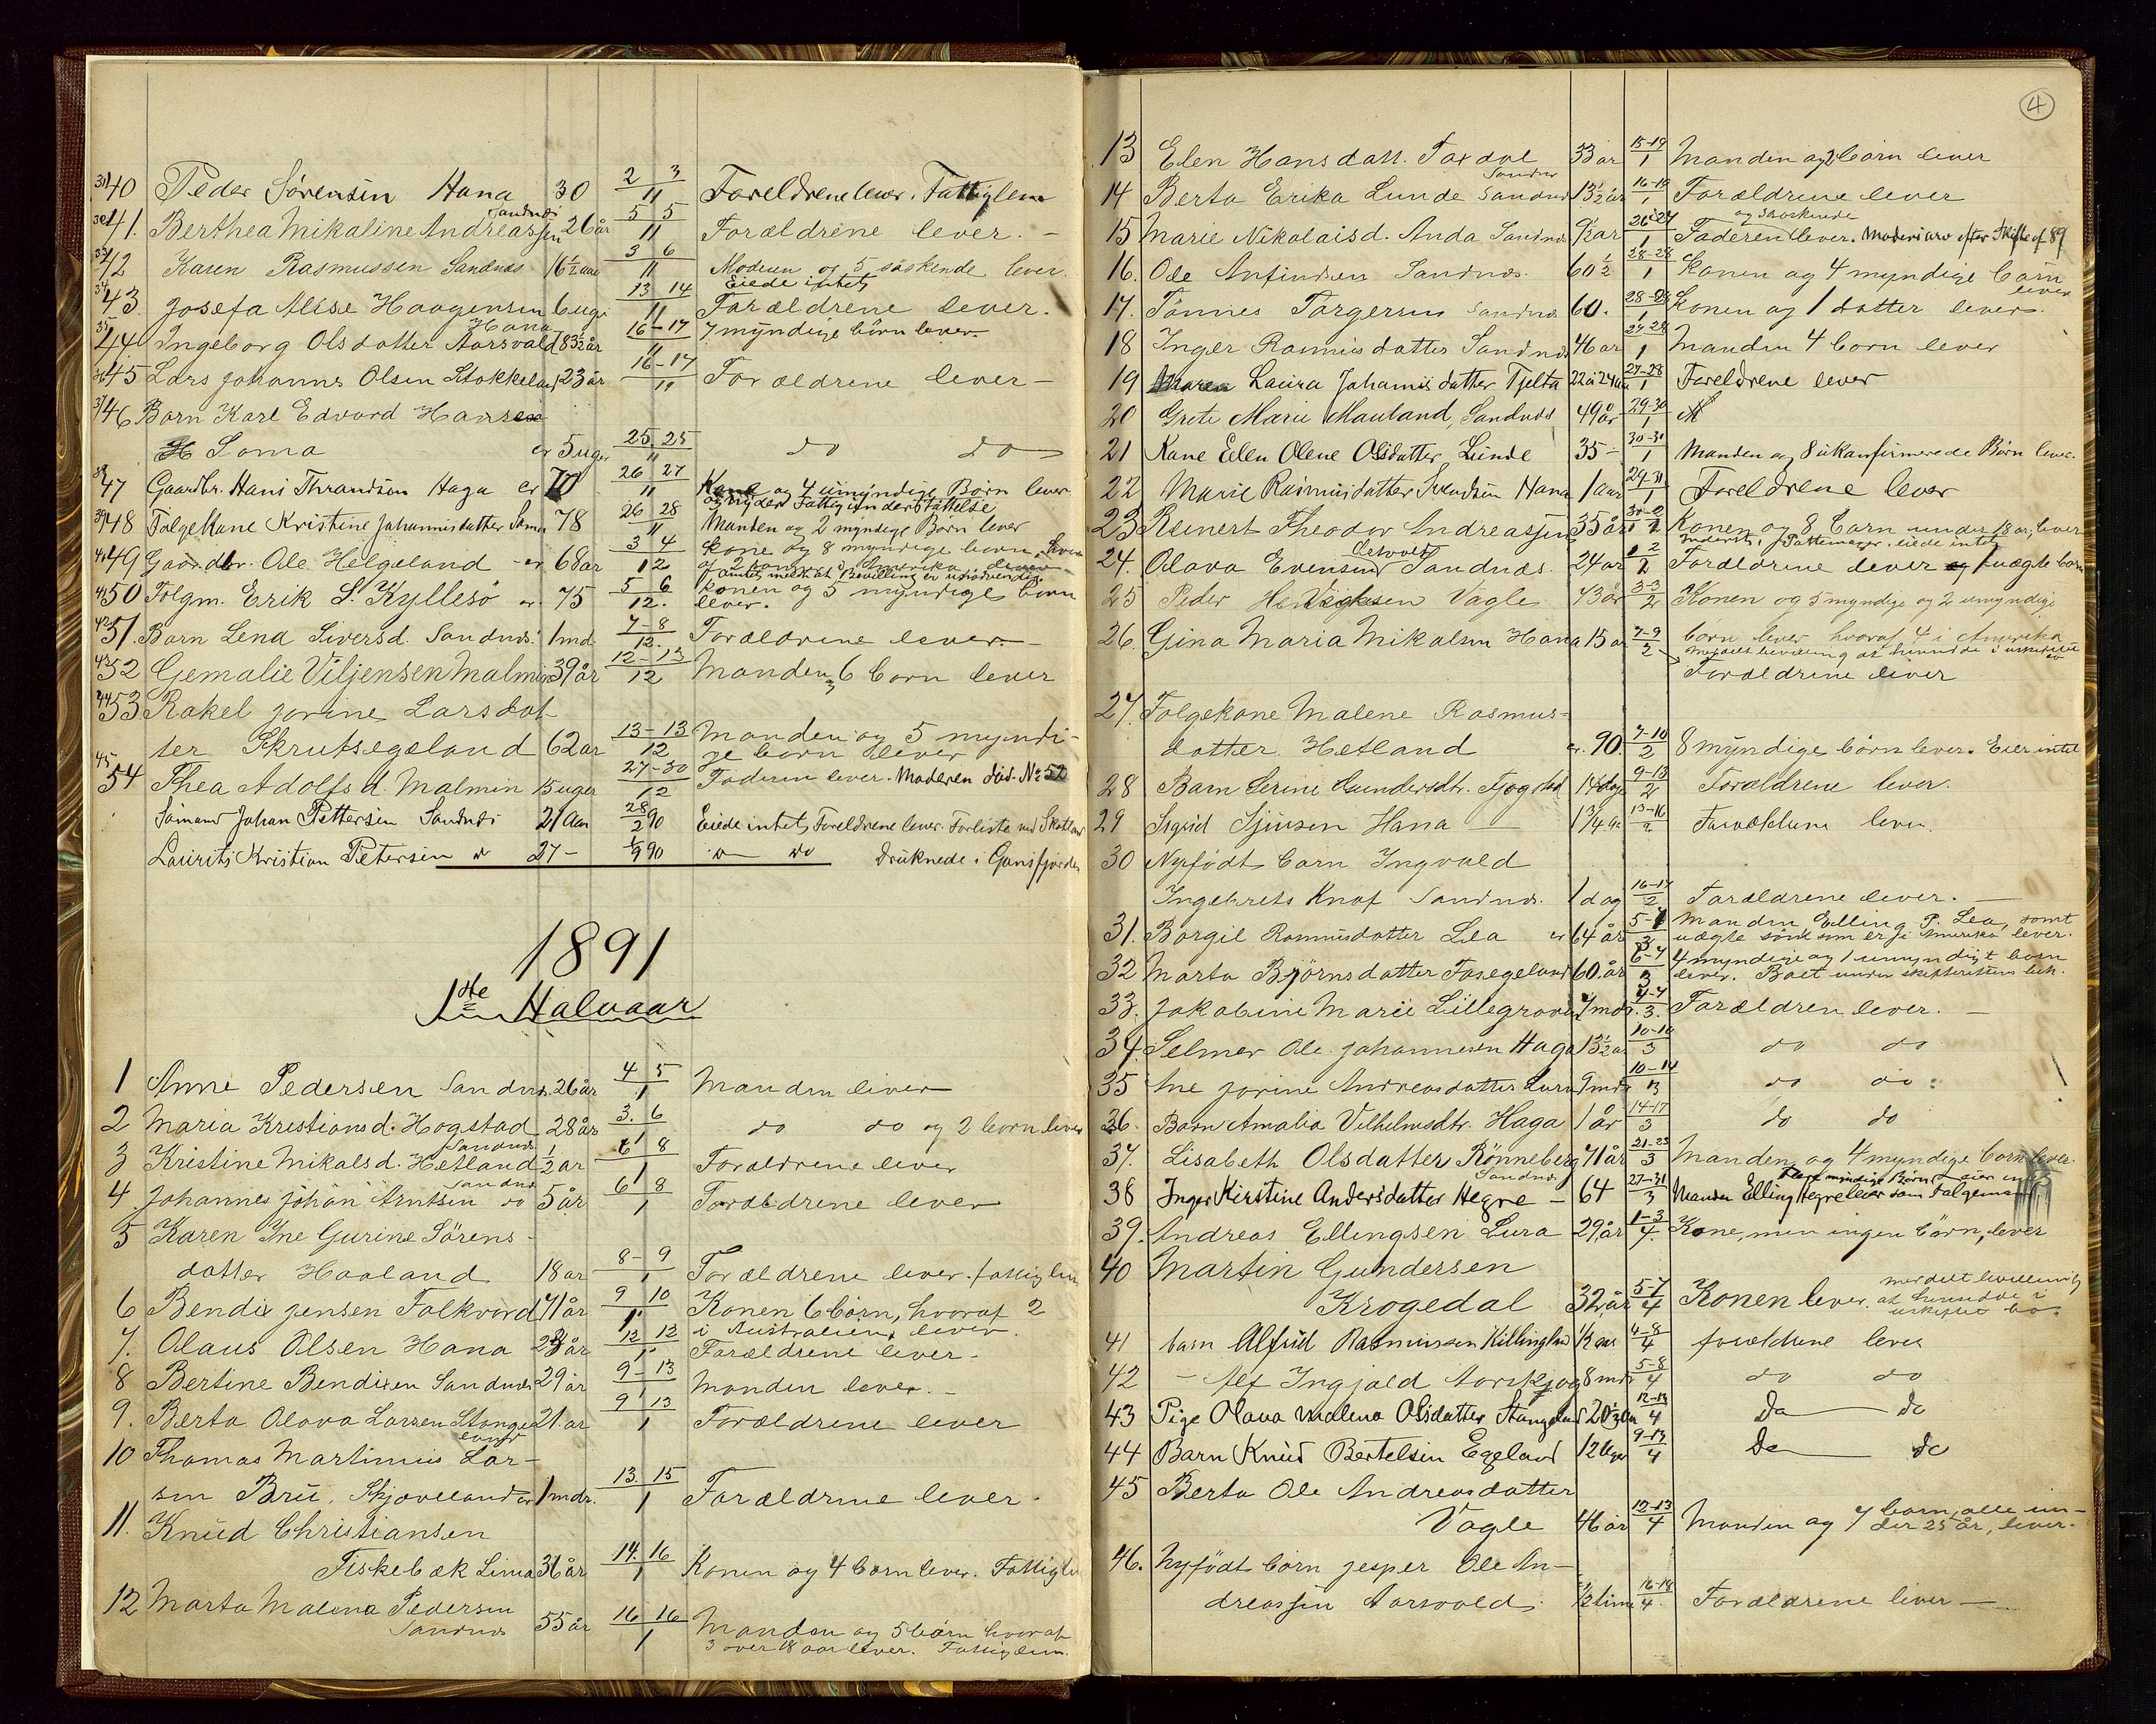 40 Peder Sörensen Hana 30 2 3/11 Foreldrene lever. Fattiglem
Sandnes
41. Berthea Mikaline Andreassen 26 år 5 5/11 Forældrene lever. -
42 Karen Rasmussen Sandnes 16½ aar 3 6/11 Moderen og 5 söskende lever.
Eiede intet
43. Josefa Alise Haagensen 6 uger 13 14/11 Forældrene lever.
Hana
44. Ingeborg Olsdatter Aarsvold 83½ år 16-17/11 7 myndige börn lever.
45 Lars Johannes Olsen Stokkeland 23 år 16-17/11 Forældrene lever -
46 Barn Karl Edvard Hansen
Soma er 5 uger 25 25/11 do do
47 Gaardbr. Hans Thrandsen Haga er 70 26 27/11 Kone og 4 umyndige Börn lever
og nyder Fattigunderstöttelse
48 Folgekone Kristine Johannisdatter Soma 78 26 28/11 Manden og 2 myndige Börn lever
49 Gaardbr. Ole Helgeland er 68 år 3 4/12 kone og 8 myndige born, hvor
af 2 bor i Amerika lever
50 Folgm. Erik S. Kyllesö er 75 5 6/12. konen og 5 myndige born
lever.
51. Barn Lena Siversd. Sandnes 1 md 7-8/12. Forældrene lever. -
52 Gemalie Viljensen Malmin 39 år 12-13/12 Manden, 6 born lever
53. Rakel Jorine Larsdat-
ter Skrutsegeland 62 ar 13-13/12 Manden og 5 myndi-
ge born lever
54 Thea Adolfsd. Malmin 15 uger 27-30/12 Faderen lever. Moderen död. No 52
Sömand Johan Pettersen Sandnes 21 Aar 28/2 90 Eiede intet, Foreldrene lever. Forliste ved Skotland
Laurits Kristian Petersen do 27 - /9 90 do do druknede i Gansfjorden
1891
1ste Halvaar
1 Anne Pedersen Sandnes. 26 år 4 5/1 Manden lever
2 Maria Kristiansd. Hogstad 28 år 3. 6/1 do do og 2 born lever
Sandnes
3 Kristine Mikalsd. Hetland ½ ar 6 8/1 Forældrene lever
Sandnes
4. Johannes Johan Arntsen do 5 år 6 8/1 Forældrene lever
5 Karen Ine Gurine Sörens-
datter Haaland 18 ar 8-9/1 Forældrene lever. fattiglem
6 Bendix Jensen Folkvord 71 år 9 10/1 Konen 6 börn, hvoraf 2
i Australien, lever.
7. Olaus Olsen Hana 28 år 12 12/1 Forældrene lever.
8 Bertine Bendixen Sandnes 29 år 9-13/1 Manden lever. -
9. Berta Olava Larsen Stange- 21. ar 9 13/1 Forældrene lever
land
10 Thomas Martinius Lar-
sen Bru, Skjæveland er 1 mdr. 13. 15/1 Forældrene lever.
11. Knud Christiansen
Fiskebæk Lima 36 år 14. 16/1 Konen og 4 born lever. Fattiglem
12 Marta Malena Pedersen
Sandnes 55 år 16 16/1 Manden og 5 börn hvoraf
3 over 18 aar lever. Fattiglem.
4
13 Elen Hansdatt. Taxdal 33 ar 15-19/1 Manden og 2 börn lever
Sandnes
14 Berta Erika Lunde Sandnes 13½ år 16-19/1 Forældrene lever
og söskende
15 Marie Nikolaisd. Anda Sandnes ½ ar 26-27/1 Faderen lever. Modersarv efter Skifte af 89
16. Ole Anfindsen Sandnes. 60½ 28-28/1 Konen og 4 myndige börn
lever
17. Tönnes Torgersen Sandnes 60. 28-28/1 Konen og 1 datter lever.
18 Inger Rasmusdatter Sandnes 46 ar 27-28/1 Manden 4 born lever
19 Maren Laura Johannisdatter Tjelta 22 à 24 aar 27-28/1 Foreldrene lever
20 Grete Marie Mauland, Sandnes 49 år 29-30/1 M
21 Kone Elen Olene Olsdatter Lunde 35 - 30-31/1 Manden og 8 ukonfirmerede Börn lever.
22 Marie Rasmusdatter Svendsen Hana 1 aar 24-31/1 Foreldrene lever
23 Reinert Theodor Andreassen 35 år 30-2/2 Konen og 8 born under 18 ar, lever
24. Olava Evensen Sandnes. 24 ar 2/2 Forældrene lever og 1 uægte barn
25 Peder Vagle 73 år 3-3/2 Konen og 5 myndige og 2 umyndige
26. Gina Maria Mikalsen Hana 15 ar 7-9/2 börn lever, hvoraf 4 i Amerika
Forældrene lever
27. Folgekone Malene Rasmus-
datter Hetland er. 90. 7-10/2 8 myndige börn lever. Eier intet
28 Barn Serine Gundersdtr. Fjogstad 14 dage 9-13/2 Forældrene lever.
29 Sigrid Sjursen Hana 1¾ 13-16/2 Forældrene lever.
30 Nyfödt barn Ingvald
Ingebrets Knaf Sandnes. 1 dag 16-17/2 Forældrene lever. -
31. Borgil Rasmusdatter Lea er 64 år 5-7/3 Manden Elling P. Lea, samt
uægte sönk som er i Amerika lever.
32 Marta Björnsdatter Fosegeland 60. år 6-7/3 4 myndige og 1 umyndigt born
lever. Boet under skifterettens beh.
33. Jakobine Marie Lillegraven 7 mdr 4-7/3. Forældren lever. -
34. Selmer Ole Johannesen Haga 13½ ar 10-10/3 do do
35 Ine Jorine Andreasdatter Lura 9 mdr 10-14/3 do do
36. Barn Amalia Vilhelmsdtr. Haga 1 år 14-17/3 do do
37. Lisabeth Olsdatter Rönneberg 71 år 21-23/3 Manden og 4 myndige born lever.
Sandnes
38 Inger Kirstine Andersdatter Hegre - 64 27-31/3 Manden Elling Hegre lever som Folgemand
39. Andreas Ellingsen Lura 29 år 1-3/4. Kone, men ingen börn, lever
40 Martin Gundersen
Krogedal 32½ år 5-7/4 Konen lever. meddelt bevilling
at hensidde i
uskiftet bo.
41 barn Alfred Rasmussen Killingland ½ aar 4-8/4 foreldrene lever
42 - Alf Ingjald Aarskjog 8 mdr 5-8/4 do do
43 Pige Olava Malena Olsdatter Stangeland 20 12-13/4 Do do
44 Barn Knud Bertelsen Egeland 12 Uger 9-13/4 Do do
45 Berta Ole Andreasdatter
Vagle 46 ar 12-13/4 Manden og 7 born, alle un-
der 25 år, lever.
46. Nyfödt börn Jesper Ole An-
dreassen Aarsvold. ½ time 16-18/4. Forældrene lever -